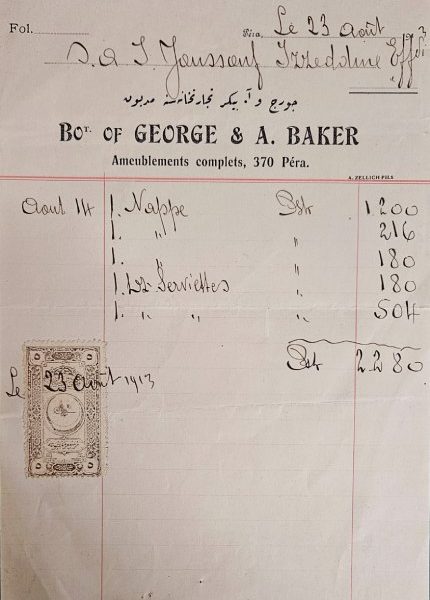 Fol. Péra, Le 23 Août 3
S. A. I. Youssouf Izzeddine Effdi
جورج و آ. بيكر تجارتخانه‌سنه مديون
BOT. OF GEORGE & A. BAKER
Ameublements complets, 370 Péra.
A. ZELLICH FILS
Aout 14 1. Nappe Pstr 1200
1. " " 216
1. " " 180
1. Dz Serviettes " 180
1. " " " 504
Pstr 2.280
Le 23 Août 1913